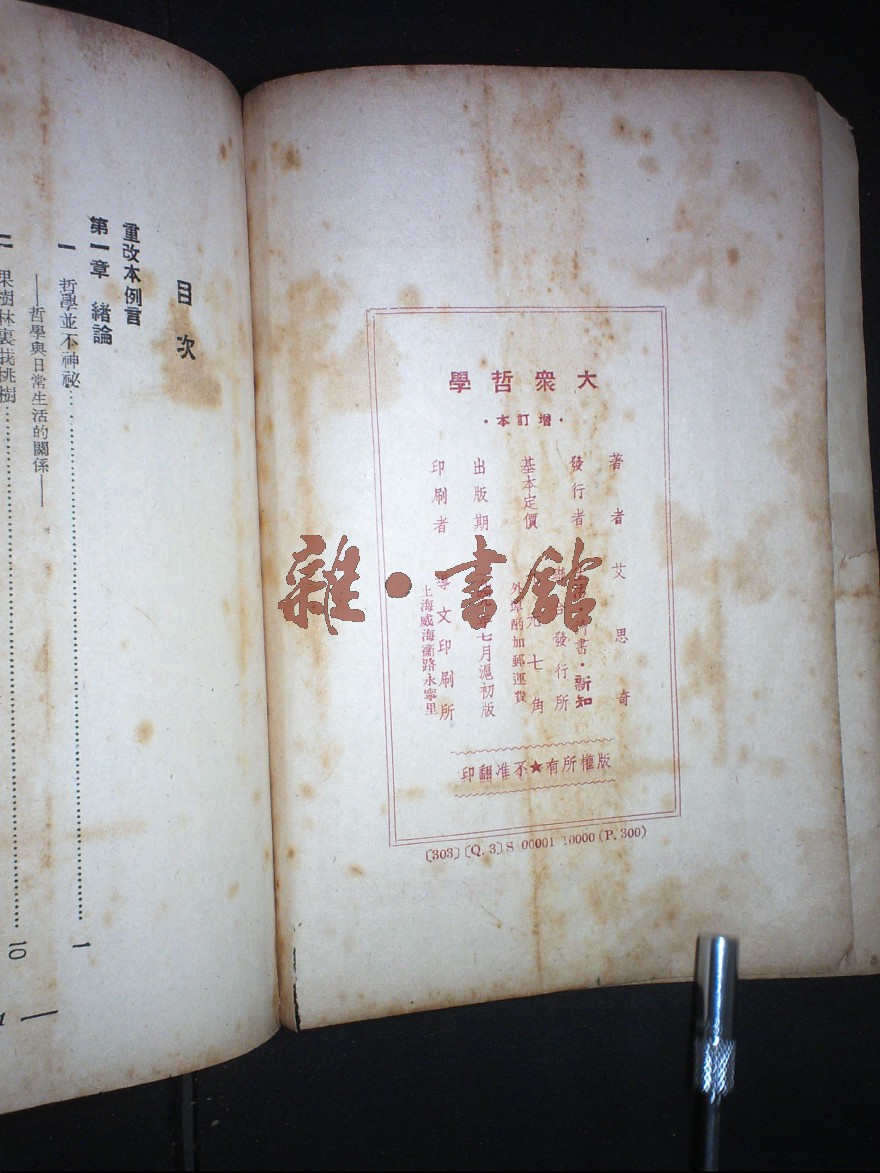 大衆哲學
·增訂本·
著者 艾思奇
發行者
書·新知
合發行所
基本定價
元七角
外埠酌加郵運費
出版期
七月滬初版
印刷者
文印刷所
上海威海衞路永寧里
版權所有★不准翻印
〔303〕〔Q.3〕S 00001 10000 (P. 300)
目次
重改本例言
第一章 緒論
一 哲學並不神祕 1
——哲學與日常生活的關係——
二 果樹林裏找桃樹 10
雜·書館